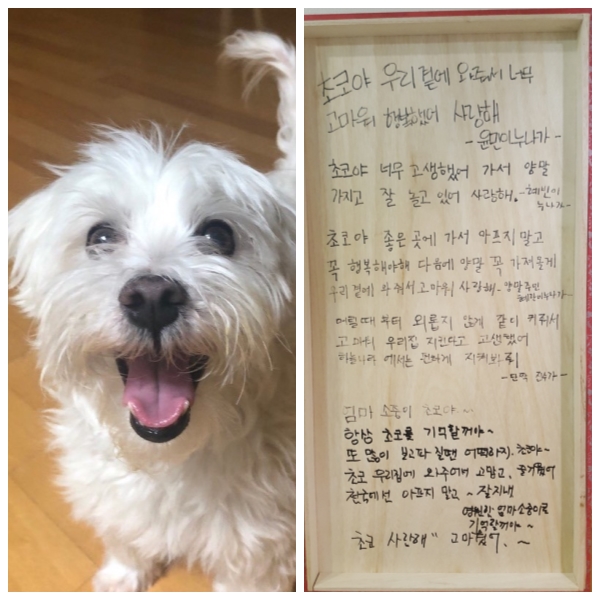 초코야 우리곁에 와줘서 너무
고마워 행복했어 사랑해
초코야 너무 고생했어 가서 양말
가지고 잘 놀고 있어 사랑해. -혜빈이
누나가-
초코야 좋은 곳에 가서 아프지 말고
꼭 행복해야해 다음에 양말 꼭 가져올게
우리 곁에 와줘서 고마워 사랑해- 양말주인
어릴때 부터 외롭지 않게 같이 커줘서
고마워 우리집 지킨다고 고생했어
하늘나라 에서는 편하게
엄마 소중이 초코야~
항상 초코를 기억할꺼야~
또 많이 보고파 질땐 어떡하지. 초코야~
초코 우리집에 와주어서 고맙고, 즐거웠어
천국에선 아프지 말고 ~ 잘지내
영원한 엄마소중이로
기억할꺼야 ~
초코 사랑해" 고마웠어. ~